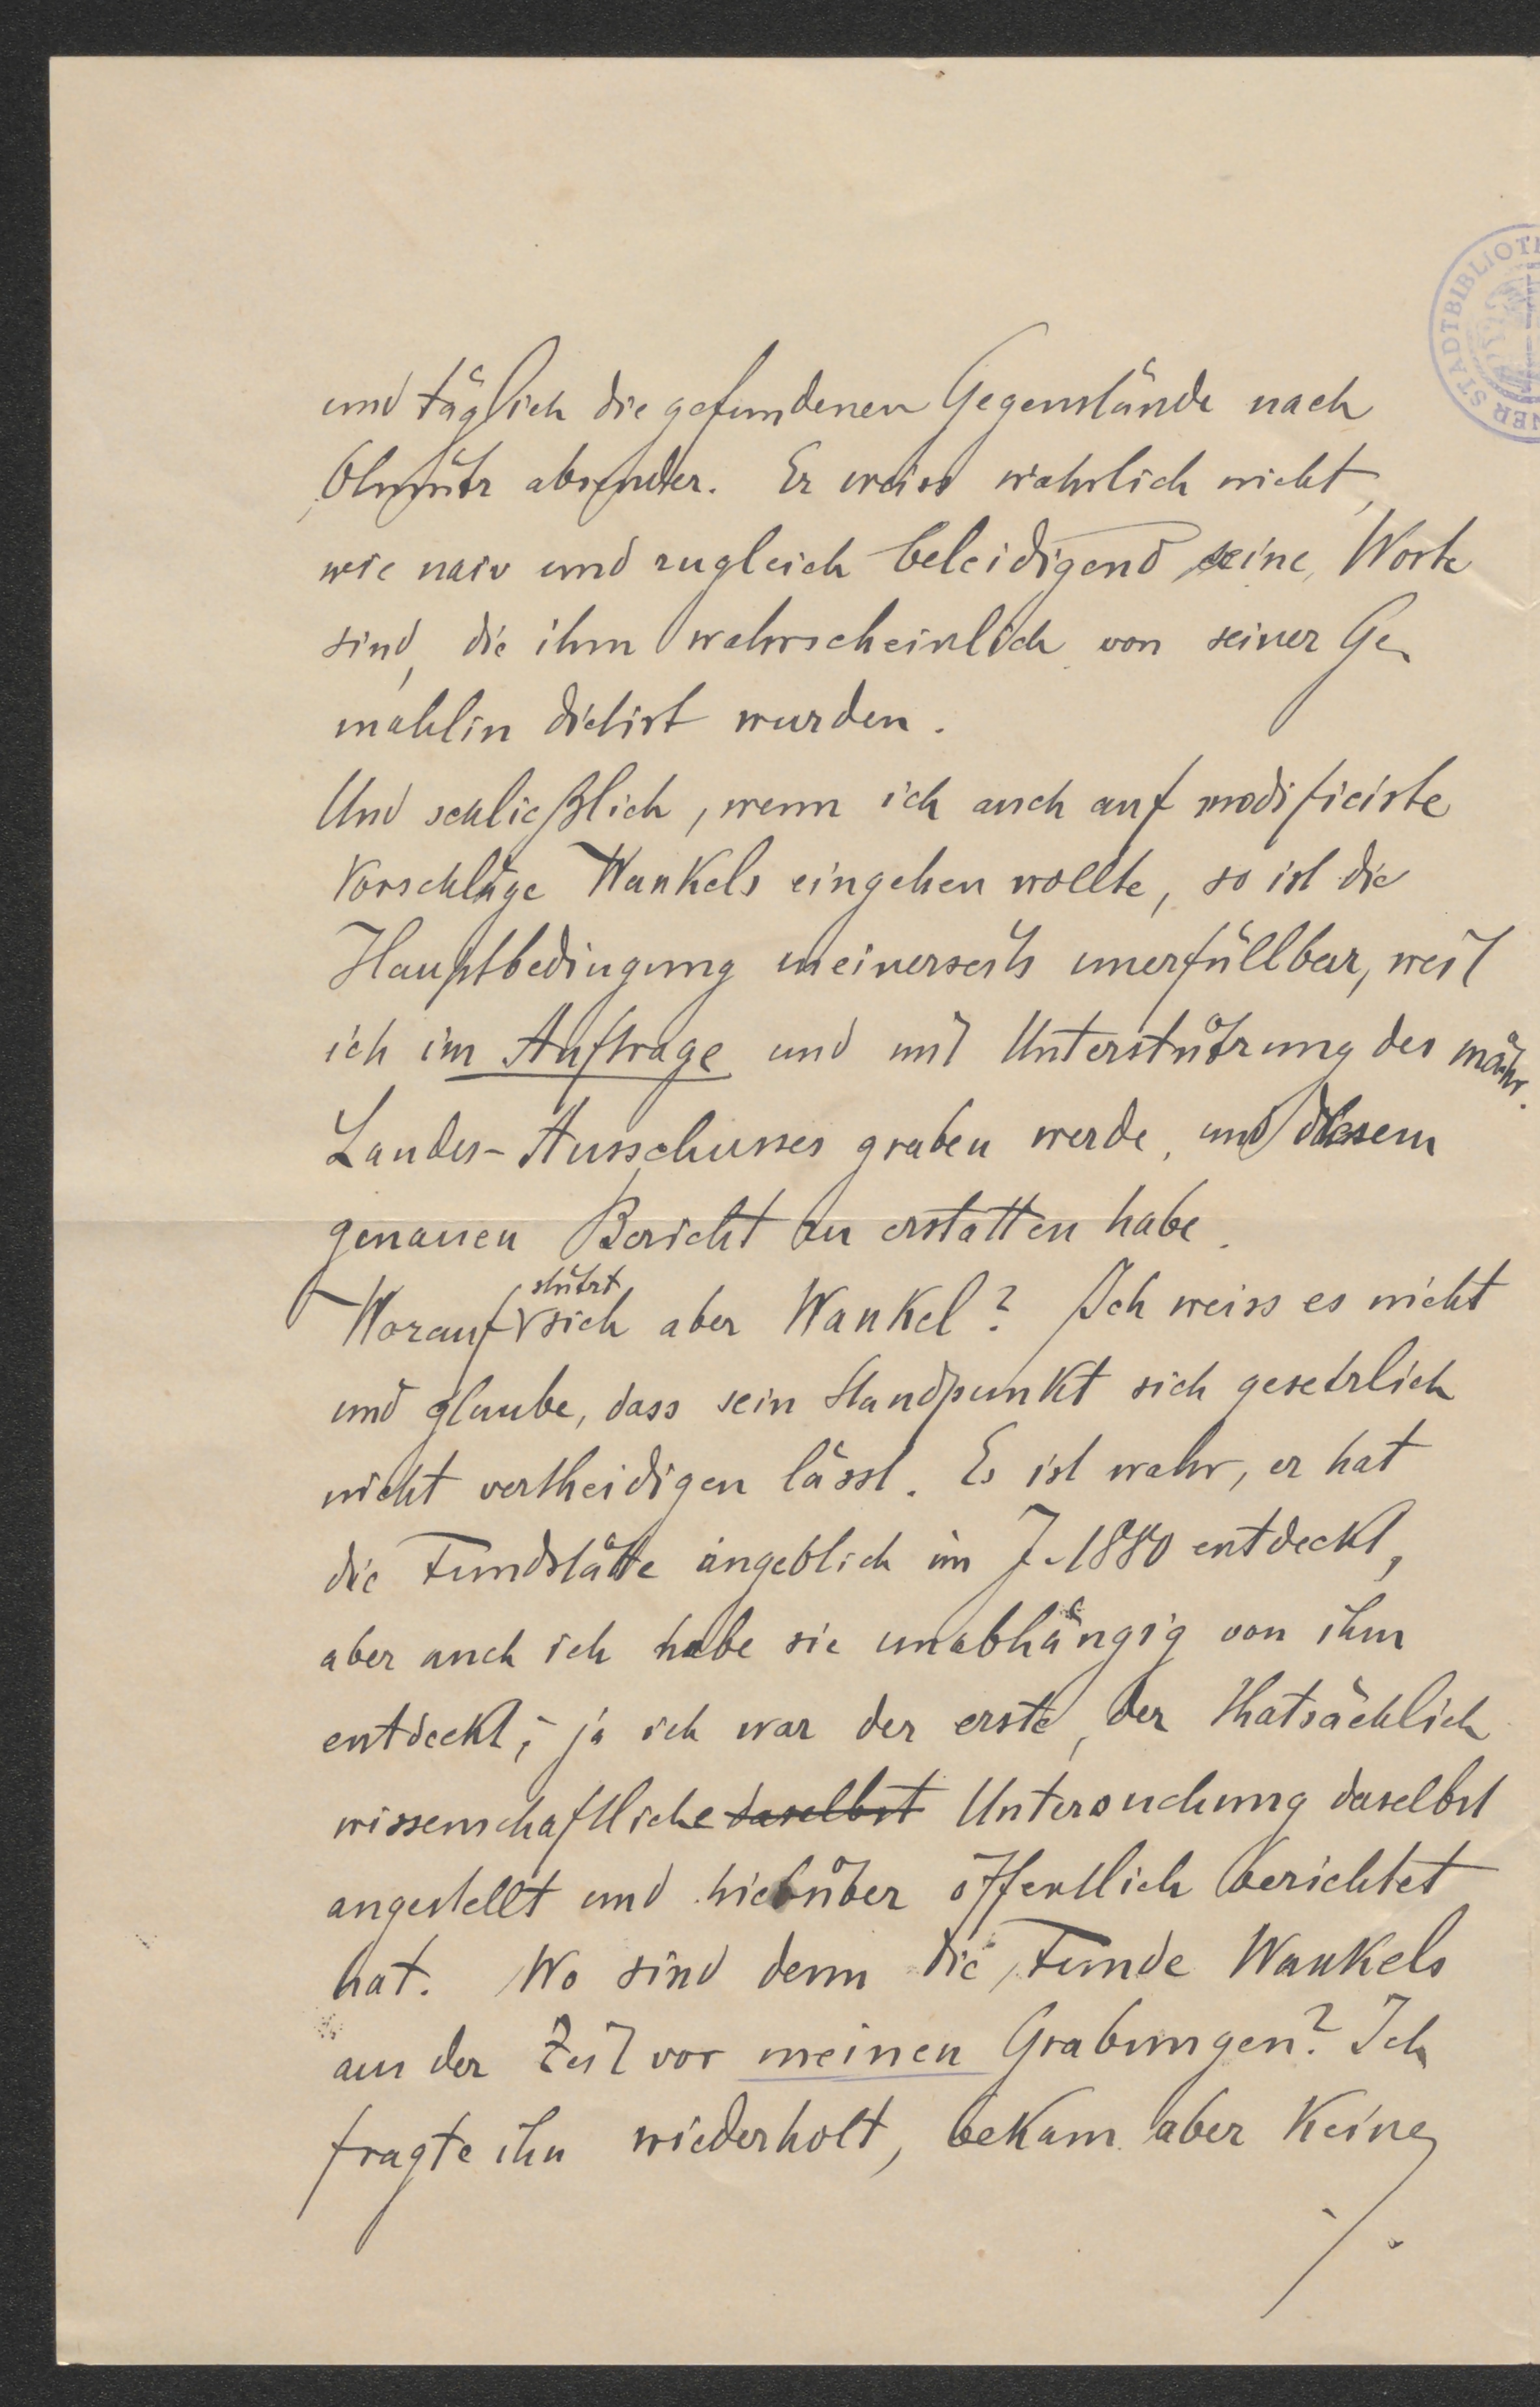 und täglich die gefundenen Gegenstände nach
Olmütz absendet. Er weiss wahrlich nicht,
wie naiv und zugleich beleidigend seine Worte
sind, die ihm wahrscheinlich von seiner Ge-
mahlin dictirt wurden.
Und schließlich, wenn ich auch auf modificirte
Vorschläge Wankels eingehen wollte, so ist die
Hauptbedingung meinerseits unerfüllbar, weil
ich im Auftrage und mit Unterstützung des mähr.
Landes-Ausschusses graben werde, und diesem
genauen Bericht zu erstatten habe.
Worauf stützt sich aber Wankel? Ich weiss es nicht
und glaube, dass sein Standpunkt sich gesetzlich
nicht vertheidigen lässt. Es ist wahr, er hat
die Fundstätte angeblich im J. 1880 entdeckt,
aber auch ich habe sie unabhängig von ihm
entdeckt; ja ich war der erste, der thatsächlich
wissenschaftliche daselbst Untersuchung daselbst
angestellt und hierüber öffentlich berichtet
hat. Wo sind denn die Funde Wankels
aus der Zeit vor meinen Grabungen? Ich
fragte ihn wiederholt, bekam aber keine
./.
NER STADTBIBLIOTH